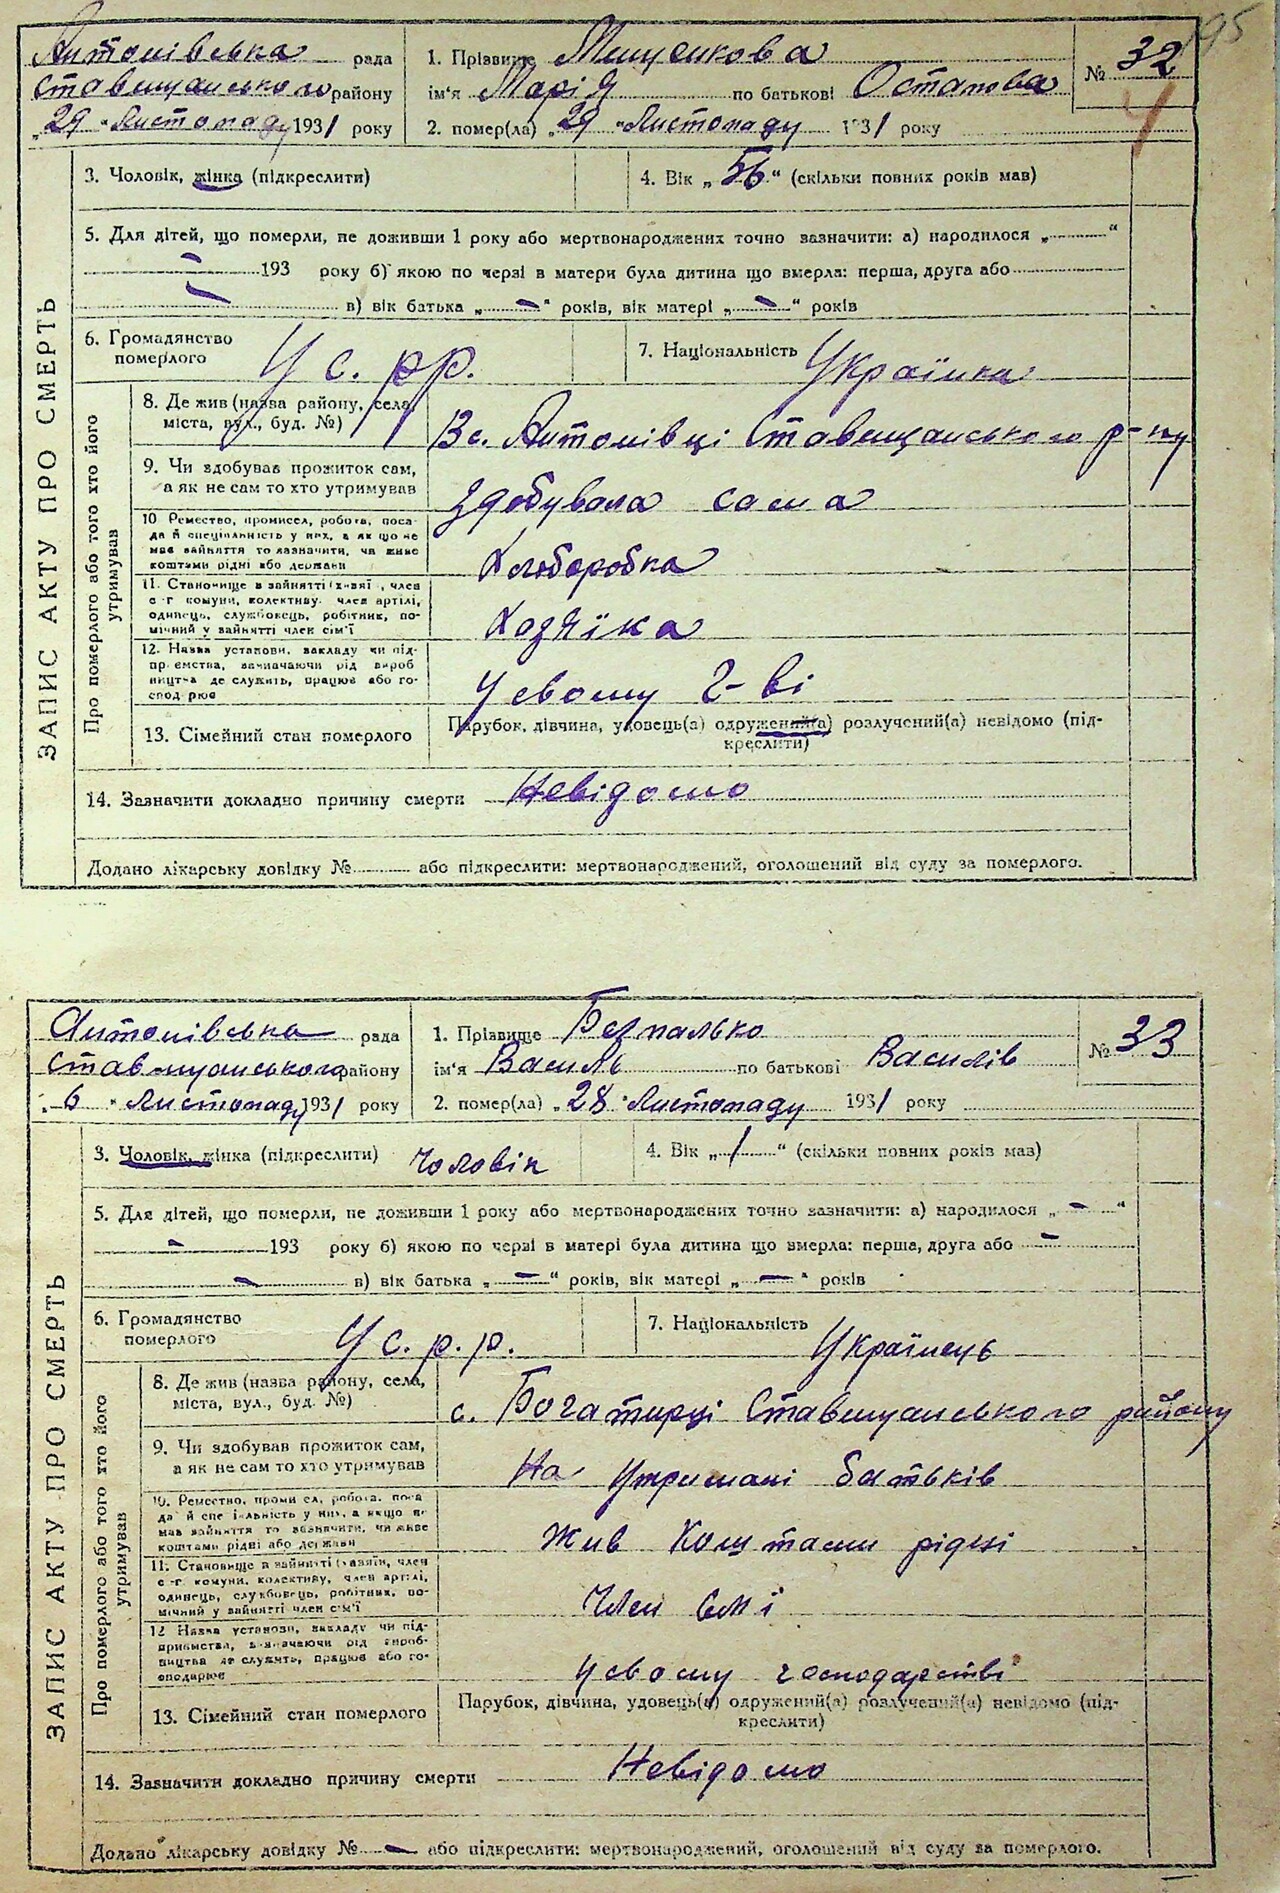 195
Антонівська рада
Ставищанського району
„29 " Листопаду 1931 року
1. Прізвище Мищенкова
ім'я Марія по батькові Остапова
№ 32
2. помер(ла) „29 " Листопаду 1931 року
3. Чоловік, жінка (підкреслити)
4. Вік „ 56 " (скільки повних років мав)
5. Для дітей, що померли, не доживши 1 року або мертвонароджених точно зазначити: а) народилося „ "
– 193 року б) якою по черзі в матери була дитина що вмерла: перша, друга або
– в) вік батька „ – " років, вік матері „ – " років
6. Громадянство
померлого
У с. рр.
7. Національність Українка
ЗАПИС АКТУ ПРО СМЕРТЬ
Про померлого або того хто його
утримував
8. Де жив (назва району, села,
міста, вул., буд. №)
В с. Антонівці Ставищанського р-ну
9. Чи здобував прожиток сам,
а як не сам то хто утримував
Здобувала сама
10 Ремество, промисел, робота, поса-
да й спеціальність у них, а як що не
має зайняття то зазначити, чи живе
коштами рідні або держави
Хлоборобка
11. Становище в зайнятті (хазяї , член
с-г комуни, колективу. член артілі,
одинець, службовець, робітник, по-
мічний у зайнятті член сім'ї
Хозяїка
12. Назва установи, закладу чи під-
приємства, зазначаючи рід вироб
ництва де служить, працює або го-
сподарює
У євому г-ві
13. Сімейний стан померлого
Парубок, дівчина, удовець(а) одружений(а) розлучений(а) невідомо (під-
креслити)
14. Зазначити докладно причину смерти Невідомо
Додано лікарську довідку № або підкреслити: мертвонароджений, оголошений від суду за померлого.
Антонівська рада
Ставищанського району
„ 6 " Листопаду 1931 року
1. Прізвище Безпалько
ім'я Василь по батькові Василів
№ 33
2. помер(ла) „28 " Листопаду 1931 року
3. Чоловік, жінка (підкреслити) Чоловік
4. Вік „ 1 " (скільки повних років мав)
5. Для дітей, що померли, не доживши 1 року або мертвонароджених точно зазначити: а) народилося „ – "
– 193 року б) якою по черзі в матері була дитина що вмерла: перша, друга або –
– в) вік батька „ – " років, вік матері „ – " років
6. Громадянство
померлого
У с. р. р.
7. Національність Українець
ЗАПИС АКТУ ПРО СМЕРТЬ
Про померлого або того хто його
утримував
8. Де жив (назва району, села,
міста, вул., буд. №)
с. Богатирці Ставищанського району
9. Чи здобував прожиток сам,
а як не сам то хто утримував
На утримані батьків
10. Ремество, промисел, робота, поса
да й спеціальність у них, а якщо не
має зайняття то зазначити, чи живе
коштами рідні або держави
Жив Коштами рідні
11. Становище в зайнятті (хазяїн, член
с-г. комуни, колективу, член артілі,
одинець, службовець, робітник, по-
мічний у зайнятті член сім'ї
Член сімї
12 Назва установи, закладу чи під-
приємства, зазначаючи рід вироб-
ництва де служить, працює або го-
сподарює
У євому господарстві
13. Сімейний стан померлого
Парубок, дівчина, удовець(а) одружений(а) розлучений(а) невідомо (під-
креслити)
14. Зазначити докладно причину смерти Невідомо
Додано лікарську довідку № – або підкреслити: мертвонароджений, оголошений від суду за померлого.